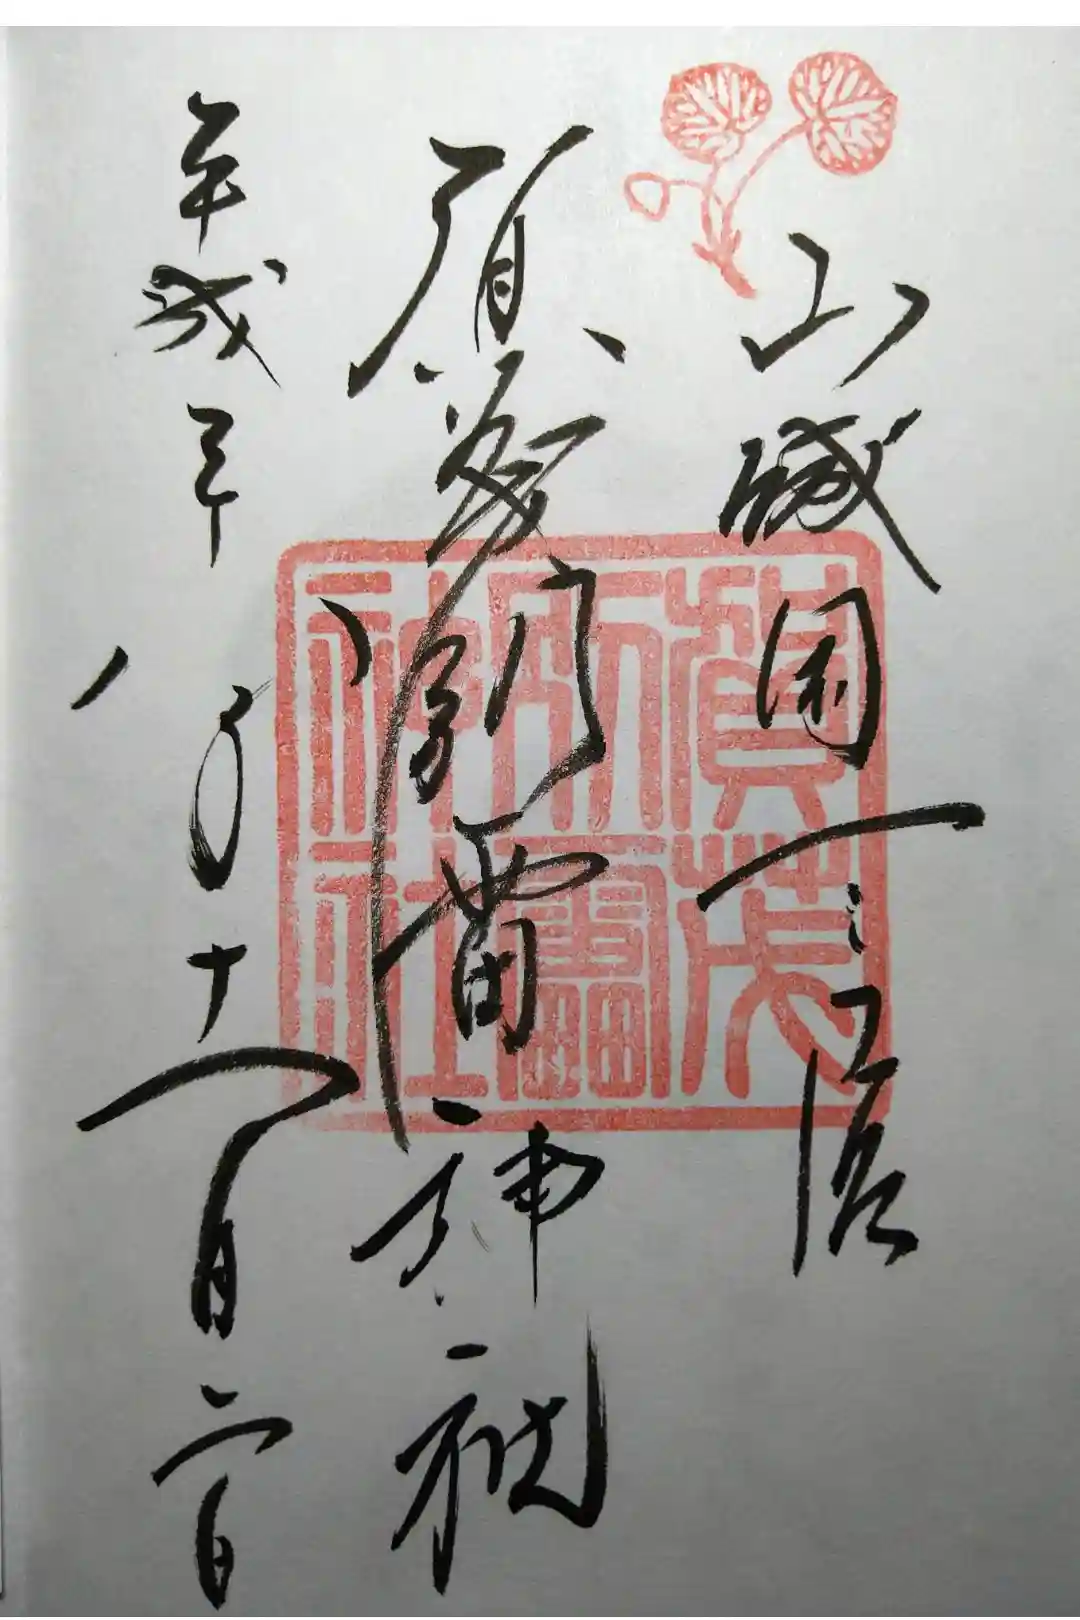 山城国一之宮
賀茂別雷神社
平成二十八年十一月二日
賀茂
別雷
神社